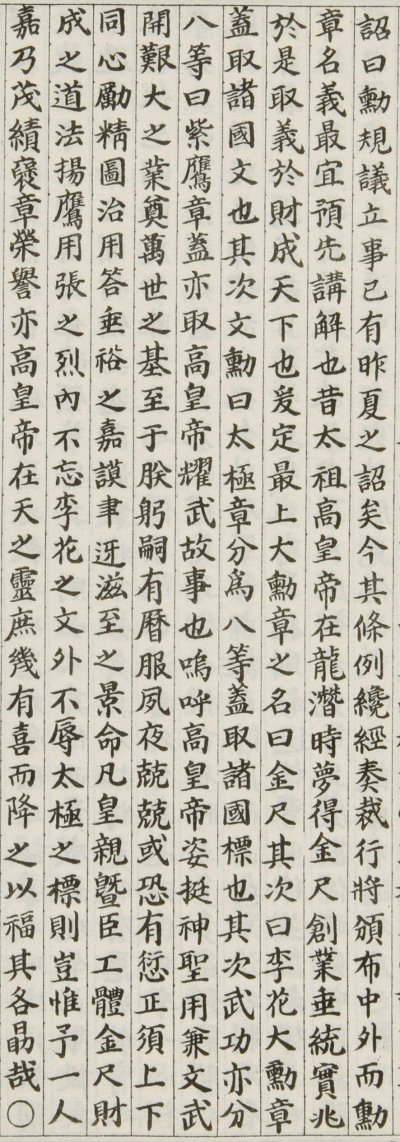 詔曰勳規議立事已有昨夏之詔矣今其條例纔經奏裁行將頒布中外而勳
章名義最宜預先講解也昔太祖高皇帝在龍潛時夢得金尺創業垂統實兆
於是取義於財成天下也爰定最上大勳章之名曰金尺其次曰李花大勳章
蓋取諸國文也其次文勳曰太極章分爲八等蓋取諸國標也其次武功亦分
八等曰紫鷹章蓋亦取高皇帝耀武故事也嗚呼高皇帝姿挺神聖用兼文武
開艱大之業奠萬世之基至于朕躬嗣有曆服夙夜兢兢或恐有愆正須上下
同心勵精圖治用答垂裕之嘉謨聿迓滋至之景命凡皇親曁臣工體金尺財
成之道法揚鷹用張之烈內不忘李花之文外不辱太極之標則豈惟予一人
嘉乃茂績襃章榮譽亦高皇帝在天之靈庶幾有喜而降之以福其各勗哉○